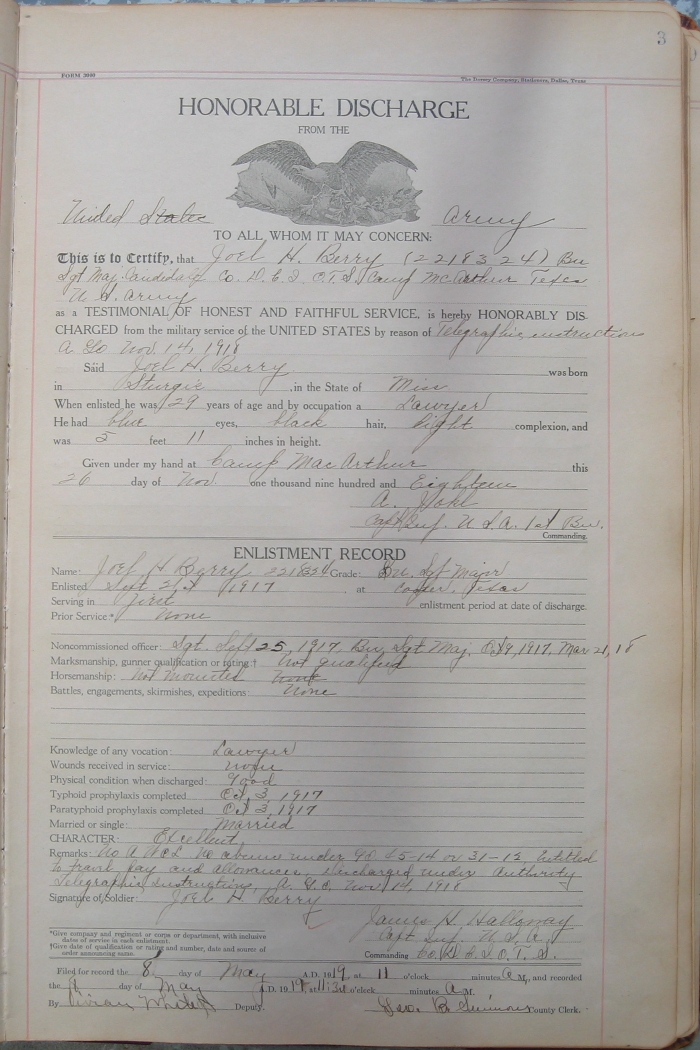 3
FORM 3000
The Dorsey Company, Stationers, Dallas, Texas
HONORABLE DISCHARGE
FROM THE
United States Army
TO ALL WHOM IT MAY CONCERN:
This is to Certify, that Joel H. Berry (2218324) Bn
Sgt Maj. Candidate Co. D. C. I. O. T. S. Camp McArthur Texas
U S. Army
as a TESTIMONIAL OF HONEST AND FAITHFUL SERVICE, is hereby HONORABLY DIS-
CHARGED from the military service of the UNITED STATES by reason of Telegraphic instructions
A. G. O Nov. 14, 1918
Said Joel H. Berry was born
in Sturgis, in the State of Miss
When enlisted he was 29 years of age and by occupation a Lawyer
He had blue eyes, black hair, light complexion, and
was 5 feet 11 inches in height.
Given under my hand at Camp MacArthur this
26 day of Nov. one thousand nine hundred and Eighteen
A.
Capt Inf. U. S. A. 1st Bn.
Commanding.
ENLISTMENT RECORD
Name: Joel H Berry 2218324 Grade: Bn. Sgt Major
Enlisted Sept 21st 1917 at Cooper, Texas
Serving in first enlistment period at date of discharge.
Prior Service* None
Noncommissioned officer: Sgt. Sept 25, 1917, Bn, Sgt Maj. Oct 9, 1917, Mar 21, 18
Marksmanship, gunner qualification or rating† Not qualified
Horsemanship: Not mounted none
Battles, engagements, skirmishes, expeditions: None
Knowledge of any vocation: Lawyer
Wounds received in service: none
Physical condition when discharged: good
Typhoid prophylaxis completed Oct, 3, 1917
Paratyphoid prophylaxis completed Oct 3, 1917
Married or single: Married
CHARACTER: Excellent
Remarks: No A W O L No absence under G O 45-14 or 31-12, Entitled
to travel pay and allowances. Discharged under Authority
Telegraphic Instructions, A. G. O. Nov. 14, 1918
Signature of Soldier: Joel H. Berry
James H. Holloway
Capt Inf. U. S. A.
*Give company and regiment or corps or department, with inclusive
dates of service in each enlistment.
†Give date of qualification or rating and number, date and source of
order announcing same.
Commanding Co. C. I. O. T. S.
Filed for record the 8 day of May A. D. 1919 at 11 o'clock minutes A M., and recorded
the 8 day of May A. D. 1919 at 11:30 o'clock minutes A M.
By Vivian Deputy. Geo. B. Simmons County Clerk.